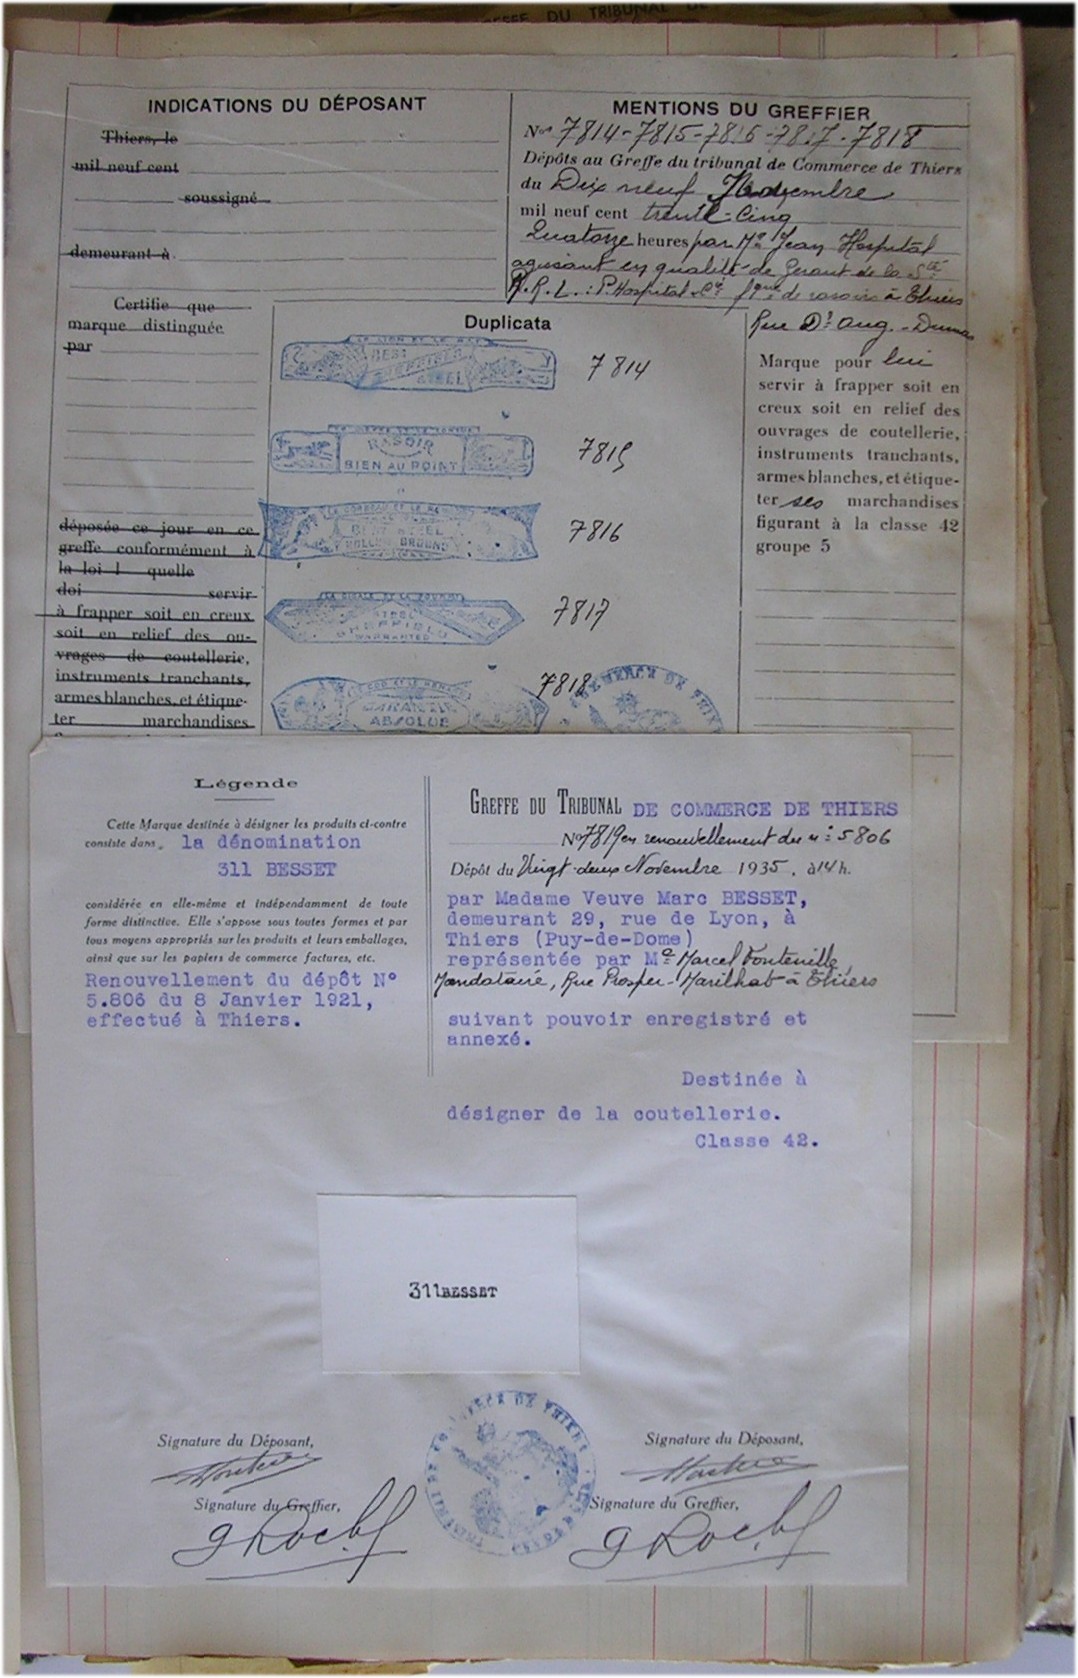 DU TRIBUNAL DE
INDICATIONS DU DÉPOSANT
Thiers, le
mil neuf cent
soussigné
demeurant à
MENTIONS DU GREFFIER
Nos 7814-7815-7816-7817-7818
Dépôts au Greffe du tribunal de Commerce de Thiers
du Dix neuf Novembre
mil neuf cent trente-Cinq
Quatorze heures par Mr Jean Hospital
agissant en qualité de Gérant de la Sté
A.R.L.: P. Hospital & Cie fque de rasoirs à Thiers
Rue Dr Aug. Dumas
Certifie que
marque distinguée
par
déposée ce jour en ce
greffe conformément à
la loi l quelle
doi servir
à frapper soit en creux
soit en relief des ou-
vrages de coutellerie,
instruments tranchants,
armes blanches, et étique-
ter marchandises
Duplicata
LE LION ET LE RAT
BEST
SHEFFIELD
STEEL
7814
RASOIR
BIEN AU POINT
7815
LE CORBEAU ET LE RENARD
BEST STEEL
HOLLOW GROUND
7816
LA CIGALE ET LA FOURMI
STEEL
SHEFFIELD
WARRANTED
7817
GARANTIE
ABSOLUE
7818
COMMERCE DE THIE
Marque pour lui
servir à frapper soit en
creux soit en relief des
ouvrages de coutellerie,
instruments tranchants,
armes blanches, et étique-
ter ses marchandises
figurant à la classe 42
groupe 5
Légende
Cette Marque destinée à désigner les produits ci-contre
consiste dans, la dénomination
311 BESSET
considérée en elle-même et indépendamment de toute
forme distinctive. Elle s'appose sous toutes formes et par
tous moyens appropriés sur les produits et leurs emballages,
ainsi que sur les papiers de commerce factures, etc.
Renouvellement du dépôt N°
5.806 du 8 Janvier 1921,
effectué à Thiers.
GREFFE DU TRIBUNAL DE COMMERCE DE THIERS
No 7819 en renouvellement du n° 5806
Dépôt du Vingt-deux Novembre 1935, à 14 h.
par Madame Veuve Marc BESSET,
demeurant 29, rue de Lyon, à
Thiers (Puy-de-Dome)
représentée par Me Marcel Fontenille,
Mandataire, Rue Prosper-Marilhat à Thiers
suivant pouvoir enregistré et
annexé.
Destinée à
désigner de la coutellerie.
Classe 42.
311BESSET
COMMERCE DE THIERS
Signature du Déposant,
Signature du Greffier,
Signature du Déposant,
Signature du Greffier,